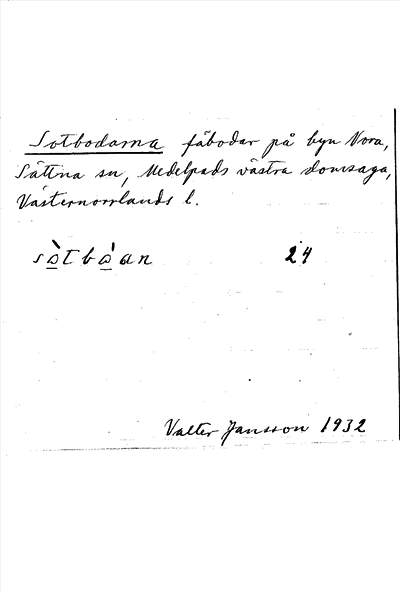 Sotbodarna fäbodar på byn Nora,
Sättna sn, Medelpads västra domsaga,
Västernorrlands l.
sò̲tbò̲'an 24
Valter Jansson 1932